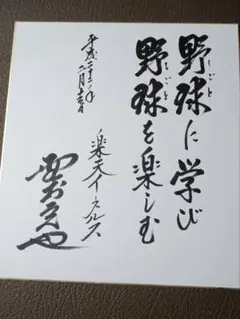 野球に学び
しごと
野球を楽しむ
しごと
平成二十二年
楽天イーグルス